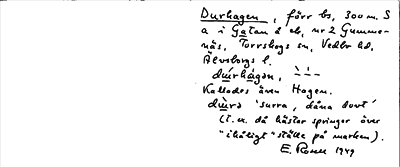 Durhagen, förr bs, 300 m. S
a i Gatan å eb, nr 2 Gumme-
näs, Torrskogs sn, Vedbo hd.
Älvsborgs l.
dùrhàgən,
Kallades även Hagen.
dùrə 'surra, dåna dovt'
(t. ex. då hästar springer över
"ihåligt" ställe på marken).
E. 1949